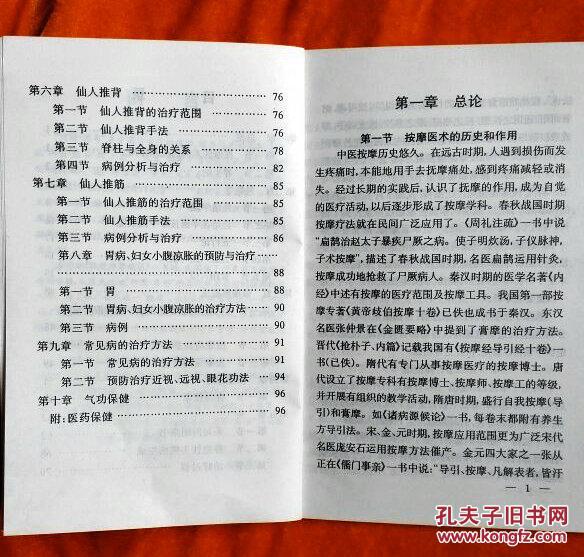 第六章 仙人推背 …………………… 76
第一节 仙人推背的治疗范围 …………… 76
第二节 仙人推背手法 …………………… 76
第三节 脊柱与全身的关系 ……………… 78
第四节 病例分析与治疗 ………………… 82
第七章 仙人推筋 …………………… 85
第一节 仙人推筋的治疗范围 …………… 85
第二节 仙人推筋手法 …………………… 85
第三节 病例分析与治疗 ………………… 86
第八章 胃病、妇女小腹凉胀的预防与治疗 ……
…………………… 88
第一节 胃 …………………… 88
第二节 胃病、妇女小腹凉胀的治疗方法 …… 90
第三节 病例 …………………… 90
第九章 常见病的治疗方法 ……………… 91
第一节 常见病的治疗方法 ……………… 91
第二节 预防治疗近视、远视、眼花功法 …… 94
第十章 气功保健 …………………… 96
附:医药保健 …………………… 96
第一章 总论
第一节 按摩医术的历史和作用
中医按摩历史悠久。在远古时期,人遇到损伤而发
生疼痛时,本能地用手去抚摩痛处,感到疼痛减轻或消
失。经过长期的实践后,认识了抚摩的作用,成为自觉
的医疗活动,以后逐步形成了按摩学科。春秋战国时期
按摩疗法就在民间广泛应用了。《周礼注疏》一书中说
“扁鹊治赵太子暴疾尸厥之病。使子明炊汤,子仪脉神,
子术按摩”,描述了春秋战国时期,名医扁鹊运用针灸、
按摩成功地抢救了尸厥病人。秦汉时期的医学名著《内
经》中述有按摩的医疗范围及按摩工具。我国第一部按
摩专著《黄帝歧伯按摩十卷》已佚也成书于秦汉。东汉
名医张仲景在《金匮要略》中提到了膏摩的治疗方法。
晋代《抢朴子、内篇》记载我国有《按摩经导引经十卷》一
书(已佚)。隋代有专门从事按摩医疗的按摩博士。唐
代设立了按摩专科有按摩博士、按摩师、按摩工的等级,
并开展有组织的教学活动,隋唐时期,盛行自我按摩(导
引)和膏摩。如《诸病源候论》一书,每卷末都附有养生
方导引法。宋、金、元时期,按摩应用范围更为广泛宋代
名医庞安石运用按摩方法催产。金元四大家之一张从
正在《儒门事亲》一书中说:“导引、按摩、凡解表者,皆汗
— 1 —
孔夫子旧书网